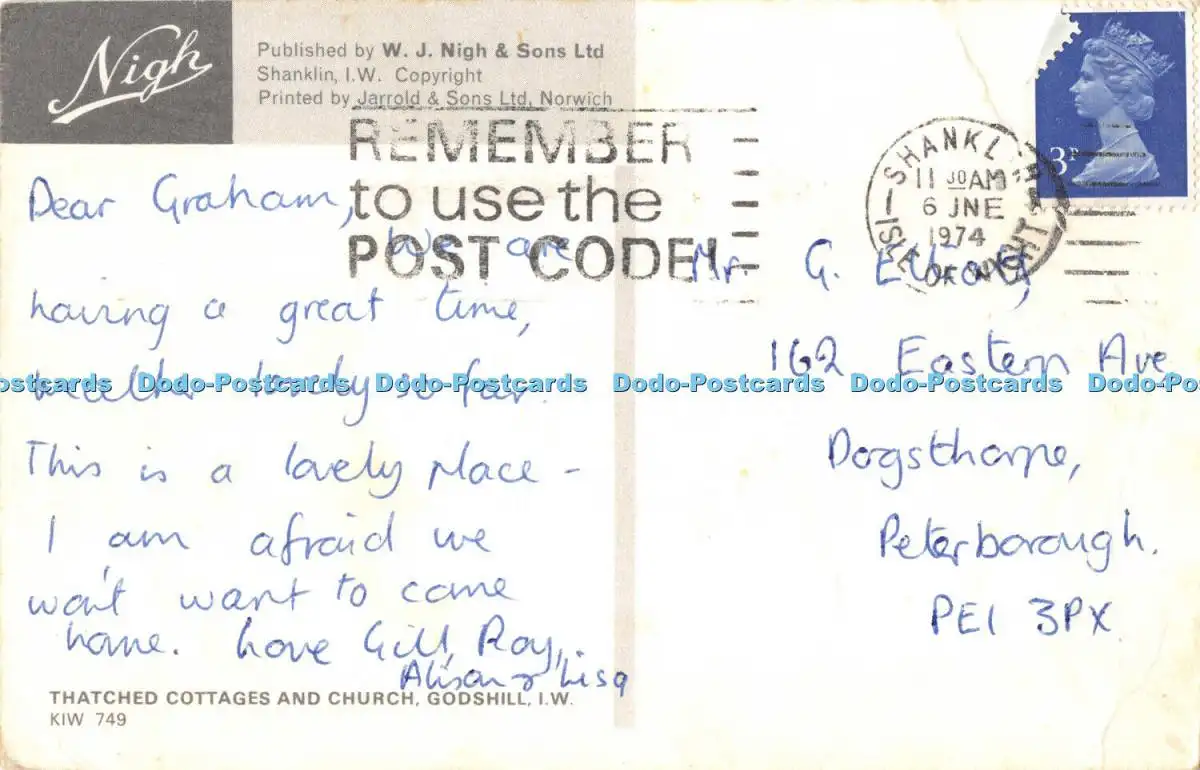 Nigh
Published by W. J. Nigh & Sons Ltd
Shanklin, I.W. Copyright
Printed by Jarrold & Sons Ltd, Norwich
REMEMBER
to use the
POST CODE!
SHANKL
ISLE OF WIGHT
11 30 AM
6 JNE
1974
3P
Dear Graham,
We are
having a great time,
weather lovely so far.
This is a lovely place -
I am afraid we
won't want to come
home. Love Gill, Roy,
Alison & Lisa
THATCHED COTTAGES AND CHURCH, GODSHILL, I.W.
KIW 749
Mr. G.
162 Eastern Ave
Dogsthorpe,
Peterborough.
PE1 3PX
ostcards Dodo-Postcards Dodo-Postcards Dodo-Postcards Dodo-Postcards Dodo-Post